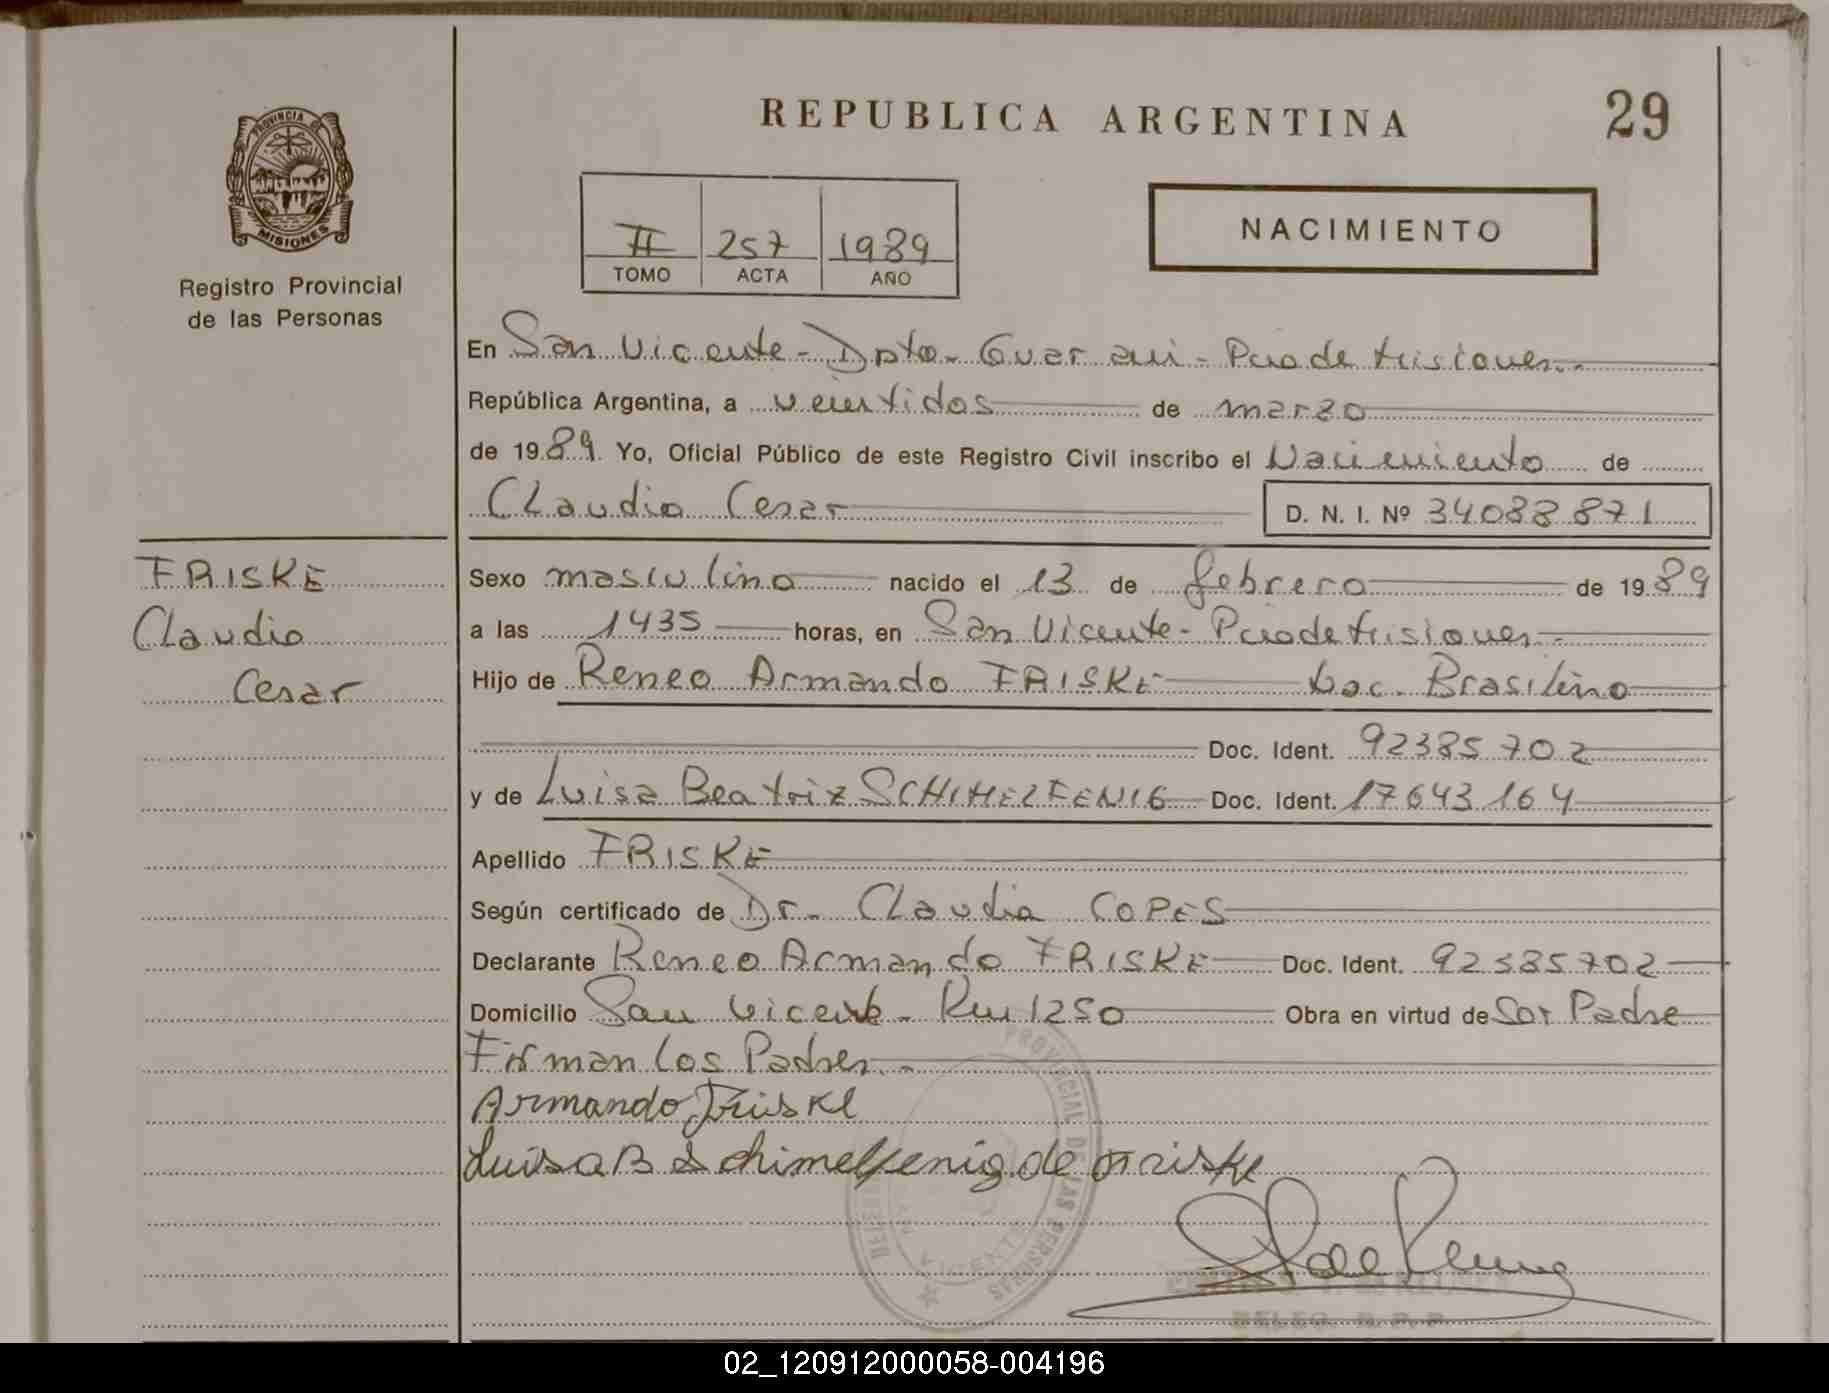 REPUBLICA ARGENTINA
29
PROVINCIA DE
MISIONES
Registro Provincial
de las Personas
II 257 1989
TOMO ACTA AÑO
NACIMIENTO
En San Vicente - Dpto. Guarani - Pcia de Misiones.-
República Argentina, a veintidos de marzo
de 1989. Yo, Oficial Público de este Registro Civil inscribo el Nacimiento de
Claudio Cesar D. N. I. Nº 34088871
FRISKE
Claudio
Cesar
Sexo masculino nacido el 13 de febrero de 1989
a las 1435 horas, en San Vicente - Pcia de Misiones.-
Hijo de Reneo Armando FRISKE Nac. Brasilino
Doc. Ident. 92385702
y de Luisa Beatriz SCHIMELFENIG Doc. Ident. 17643164
Apellido FRISKE
Según certificado de Dr. Claudia COPES
Declarante Reneo Armando FRISKE Doc. Ident. 92385702
Domicilio San Vicente - Km 1250 Obra en virtud de Ser Padre
Firman los Padres.-
Armando Friske
Luisa B Schimelfenig de Friske
PROVINCIAL DE LAS PERSONAS
VICENTE
DELEG. R. P. P.
02_120912000058-004196